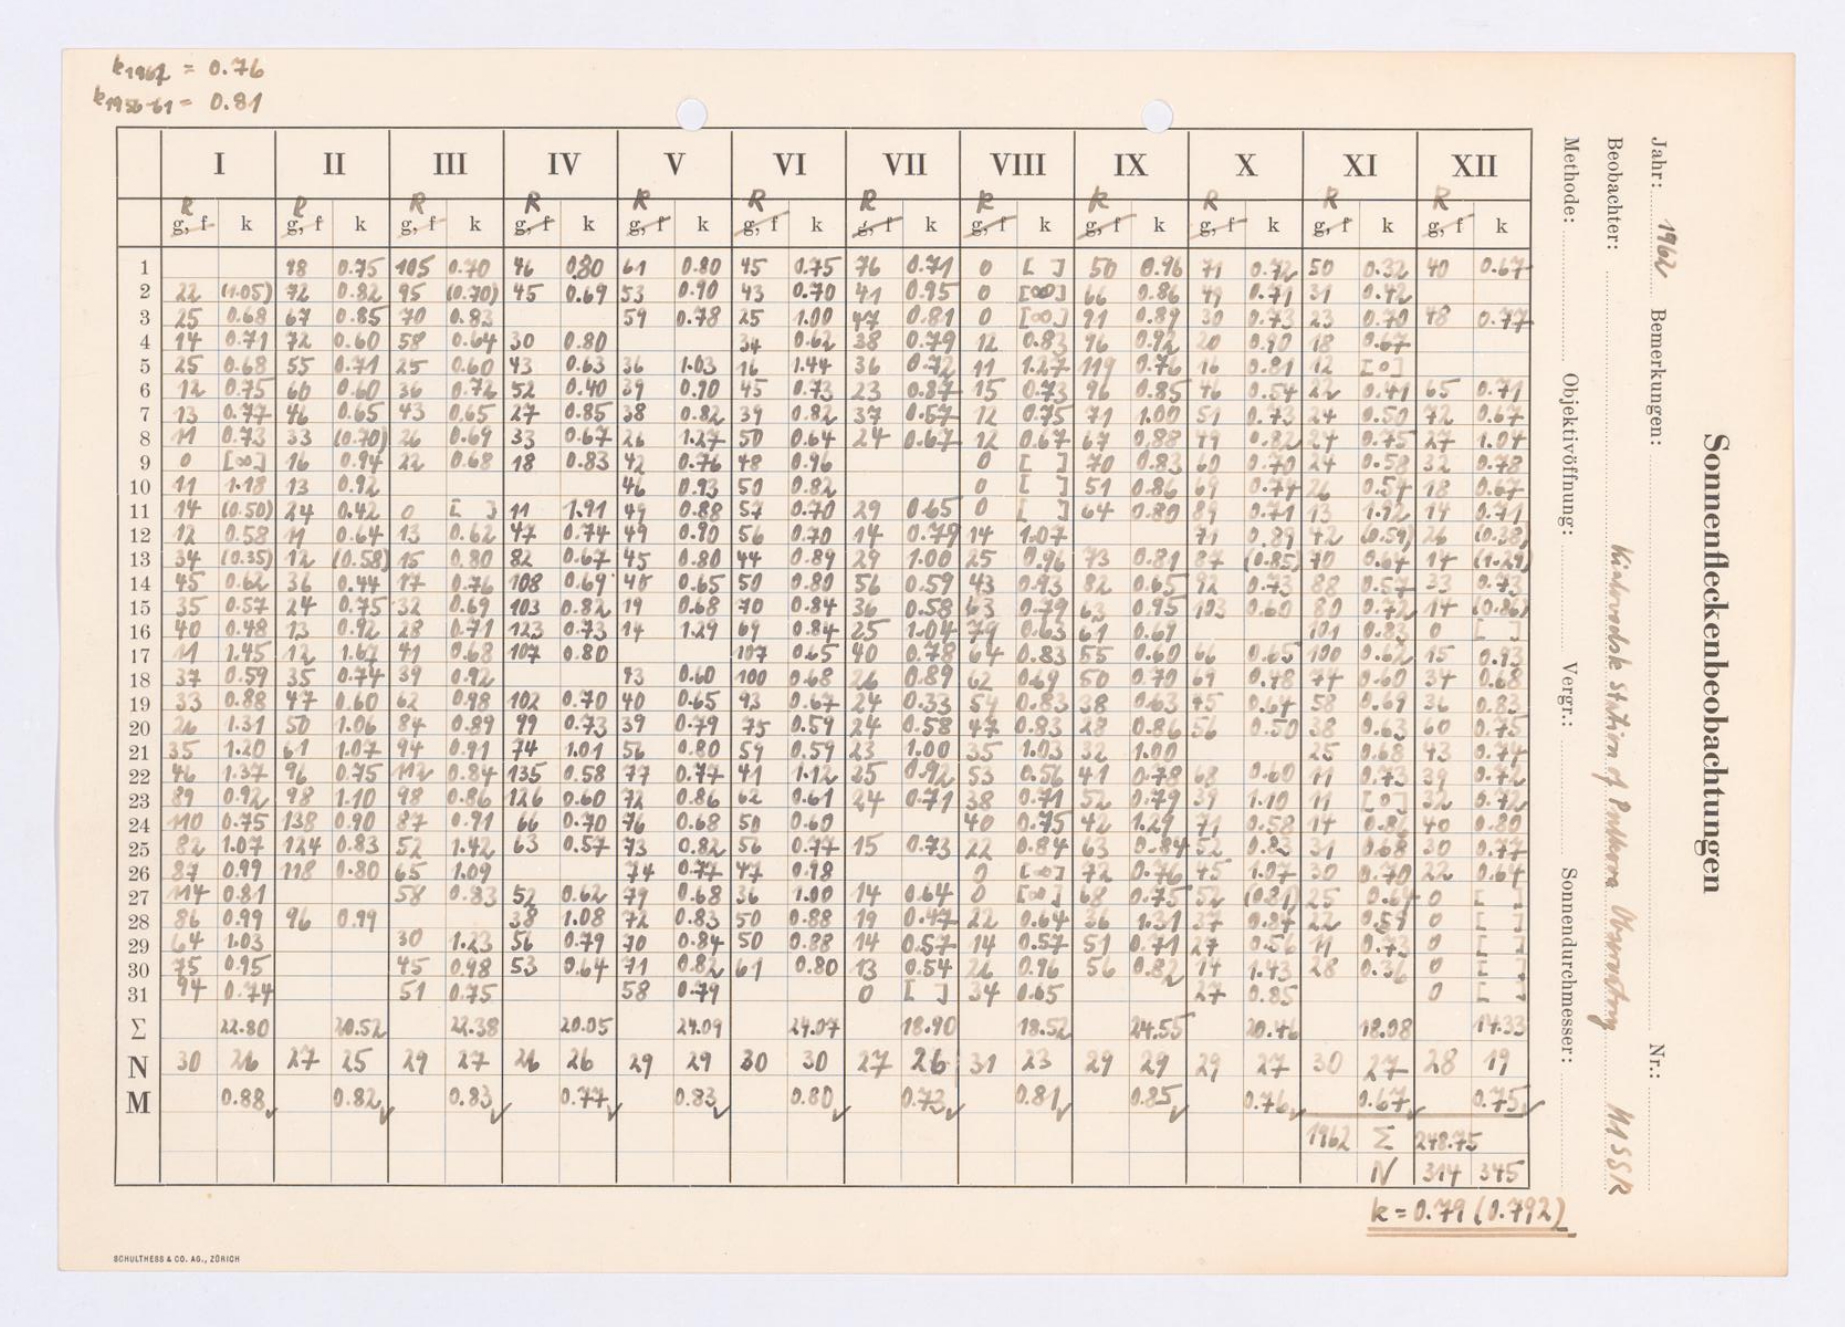 k1962 = 0.76
k1956-61 = 0.81
I II III IV V VI VII VIII IX X XI XII
R R R R R R R R R R R R
g, f k g, f k g, f k g, f k g, f k g, f k g, f k g, f k g, f k g, f k g, f k g, f k
1 98 0.75 105 0.70 46 0.80 61 0.80 45 0.75 76 0.71 0 [ ] 50 0.96 71 0.72 50 0.32 40 0.67
2 22 (1.05) 72 0.82 95 (0.70) 45 0.69 53 0.90 43 0.70 41 0.95 0 [∞] 66 0.86 49 0.71 31 0.42
3 25 0.68 67 0.85 70 0.83 59 0.78 25 1.00 47 0.81 0 [∞] 91 0.89 30 0.73 23 0.70 48 0.77
4 14 0.71 72 0.60 58 0.64 30 0.80 34 0.62 38 0.79 12 0.83 96 0.92 20 0.90 18 0.67
5 25 0.68 55 0.71 25 0.60 43 0.63 36 1.03 16 1.44 36 0.72 11 1.27 119 0.76 16 0.81 12 [0]
6 12 0.75 60 0.60 36 0.72 52 0.40 39 0.90 45 0.73 23 0.87 15 0.73 96 0.85 46 0.54 22 0.41 65 0.71
7 13 0.77 46 0.65 43 0.65 27 0.85 38 0.82 39 0.82 37 0.57 12 0.75 71 1.00 51 0.73 24 0.50 72 0.67
8 11 0.73 33 (0.70) 26 0.69 33 0.67 26 1.27 50 0.64 24 0.67 12 0.67 67 0.88 49 0.82 24 0.75 27 1.04
9 0 [∞] 16 0.94 22 0.68 18 0.83 42 0.76 48 0.96 0 [ ] 70 0.83 60 0.70 24 0.58 32 0.78
10 11 1.18 13 0.92 46 0.93 50 0.82 0 [ ] 51 0.86 69 0.74 26 0.54 18 0.67
11 14 (0.50) 24 0.42 0 [ ] 11 1.91 49 0.88 57 0.70 29 0.65 0 [ ] 64 0.80 89 0.71 13 1.92 14 0.71
12 12 0.58 11 0.64 13 0.62 47 0.74 49 0.90 56 0.70 14 0.79 14 1.07 71 0.89 42 (0.59) 26 (0.38)
13 34 (0.35) 12 (0.58) 15 0.80 82 0.67 45 0.80 44 0.89 29 1.00 25 0.96 73 0.81 87 (0.85) 70 0.64 14 (1.29)
14 45 0.62 36 0.44 17 0.76 108 0.69 48 0.65 50 0.80 56 0.59 43 0.93 82 0.65 92 0.73 88 0.57 33 0.73
15 35 0.57 24 0.75 32 0.69 103 0.82 19 0.68 70 0.84 36 0.58 63 0.79 63 0.95 103 0.60 80 0.72 14 (0.86)
16 40 0.48 13 0.92 28 0.71 123 0.73 14 1.29 69 0.84 25 1.04 79 0.63 61 0.69 101 0.83 0 [ ]
17 11 1.45 12 1.67 41 0.68 107 0.80 107 0.65 40 0.78 64 0.83 55 0.60 66 0.65 100 0.62 15 0.93
18 37 0.59 35 0.74 39 0.92 93 0.60 100 0.68 26 0.89 62 0.69 50 0.70 69 0.48 74 0.60 34 0.68
19 33 0.88 47 0.60 62 0.98 102 0.70 40 0.65 93 0.67 24 0.33 54 0.83 38 0.63 45 0.64 58 0.69 36 0.83
20 26 1.31 50 1.06 84 0.89 99 0.73 39 0.79 75 0.59 24 0.58 47 0.83 28 0.86 56 0.50 38 0.63 60 0.75
21 35 1.20 61 1.07 94 0.91 74 1.01 56 0.80 59 0.59 23 1.00 35 1.03 32 1.00 25 0.68 43 0.74
22 46 1.37 96 0.75 112 0.84 135 0.58 77 0.77 41 1.12 25 0.92 53 0.56 41 0.78 68 0.60 11 0.73 39 0.72
23 89 0.92 98 1.10 98 0.86 126 0.60 72 0.86 62 0.61 24 0.71 38 0.71 52 0.79 39 1.10 11 [0] 32 0.72
24 110 0.75 138 0.90 87 0.91 66 0.70 76 0.68 50 0.60 40 0.75 42 1.29 71 0.58 14 0.82 40 0.80
25 82 1.07 124 0.83 52 1.42 63 0.57 73 0.82 56 0.77 15 0.73 22 0.84 63 0.84 52 0.83 31 0.68 30 0.77
26 87 0.99 118 0.80 65 1.09 74 0.77 47 0.98 0 [∞] 72 0.76 45 1.07 30 0.70 22 0.64
27 114 0.81 58 0.83 52 0.62 79 0.68 36 1.00 14 0.64 0 [∞] 68 0.75 52 (0.81) 25 0.64 0 [ ]
28 86 0.99 96 0.99 38 1.08 72 0.83 50 0.88 19 0.47 22 0.64 36 1.31 37 0.84 22 0.59 0 [ ]
29 64 1.03 30 1.23 56 0.79 70 0.84 50 0.88 14 0.57 14 0.57 51 0.71 27 0.56 11 0.73 0 [ ]
30 75 0.95 45 0.98 53 0.64 71 0.82 61 0.80 13 0.54 26 0.96 56 0.82 14 1.43 28 0.36 0 [ ]
31 94 0.74 51 0.75 58 0.79 0 [ ] 34 0.65 27 0.85 0 [ ]
Σ 22.80 20.52 22.38 20.05 24.09 24.07 18.90 18.52 24.55 20.46 18.08 14.33
N 30 26 27 25 29 27 26 26 29 29 30 30 27 26 31 23 29 29 29 27 30 27 28 19
M 0.88 0.82 0.83 0.77 0.83 0.80 0.73 0.81 0.85 0.76 0.67 0.75
1962 Σ 248.75
N 314 345
k = 0.79 (0.792)
SCHULTHESS & CO. AG., ZÜRICH
Sonnenfleckenbeobachtungen
Jahr: 1962 Bemerkungen: Nr.:
Beobachter: station of Observatory
Methode: Objektivöffnung: Vergr.: Sonnendurchmesser: